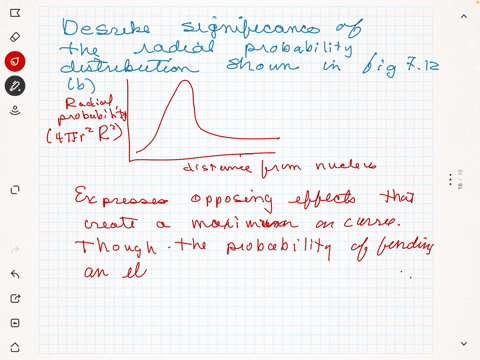 Describe significance of
the radial probability
distribution shown in fig 7.12
(b)
Radial
probability
(4πr² R²)
distance from nucleus
Expresses opposing effects that
create a maximum on curve.
Though the probability of finding
an el